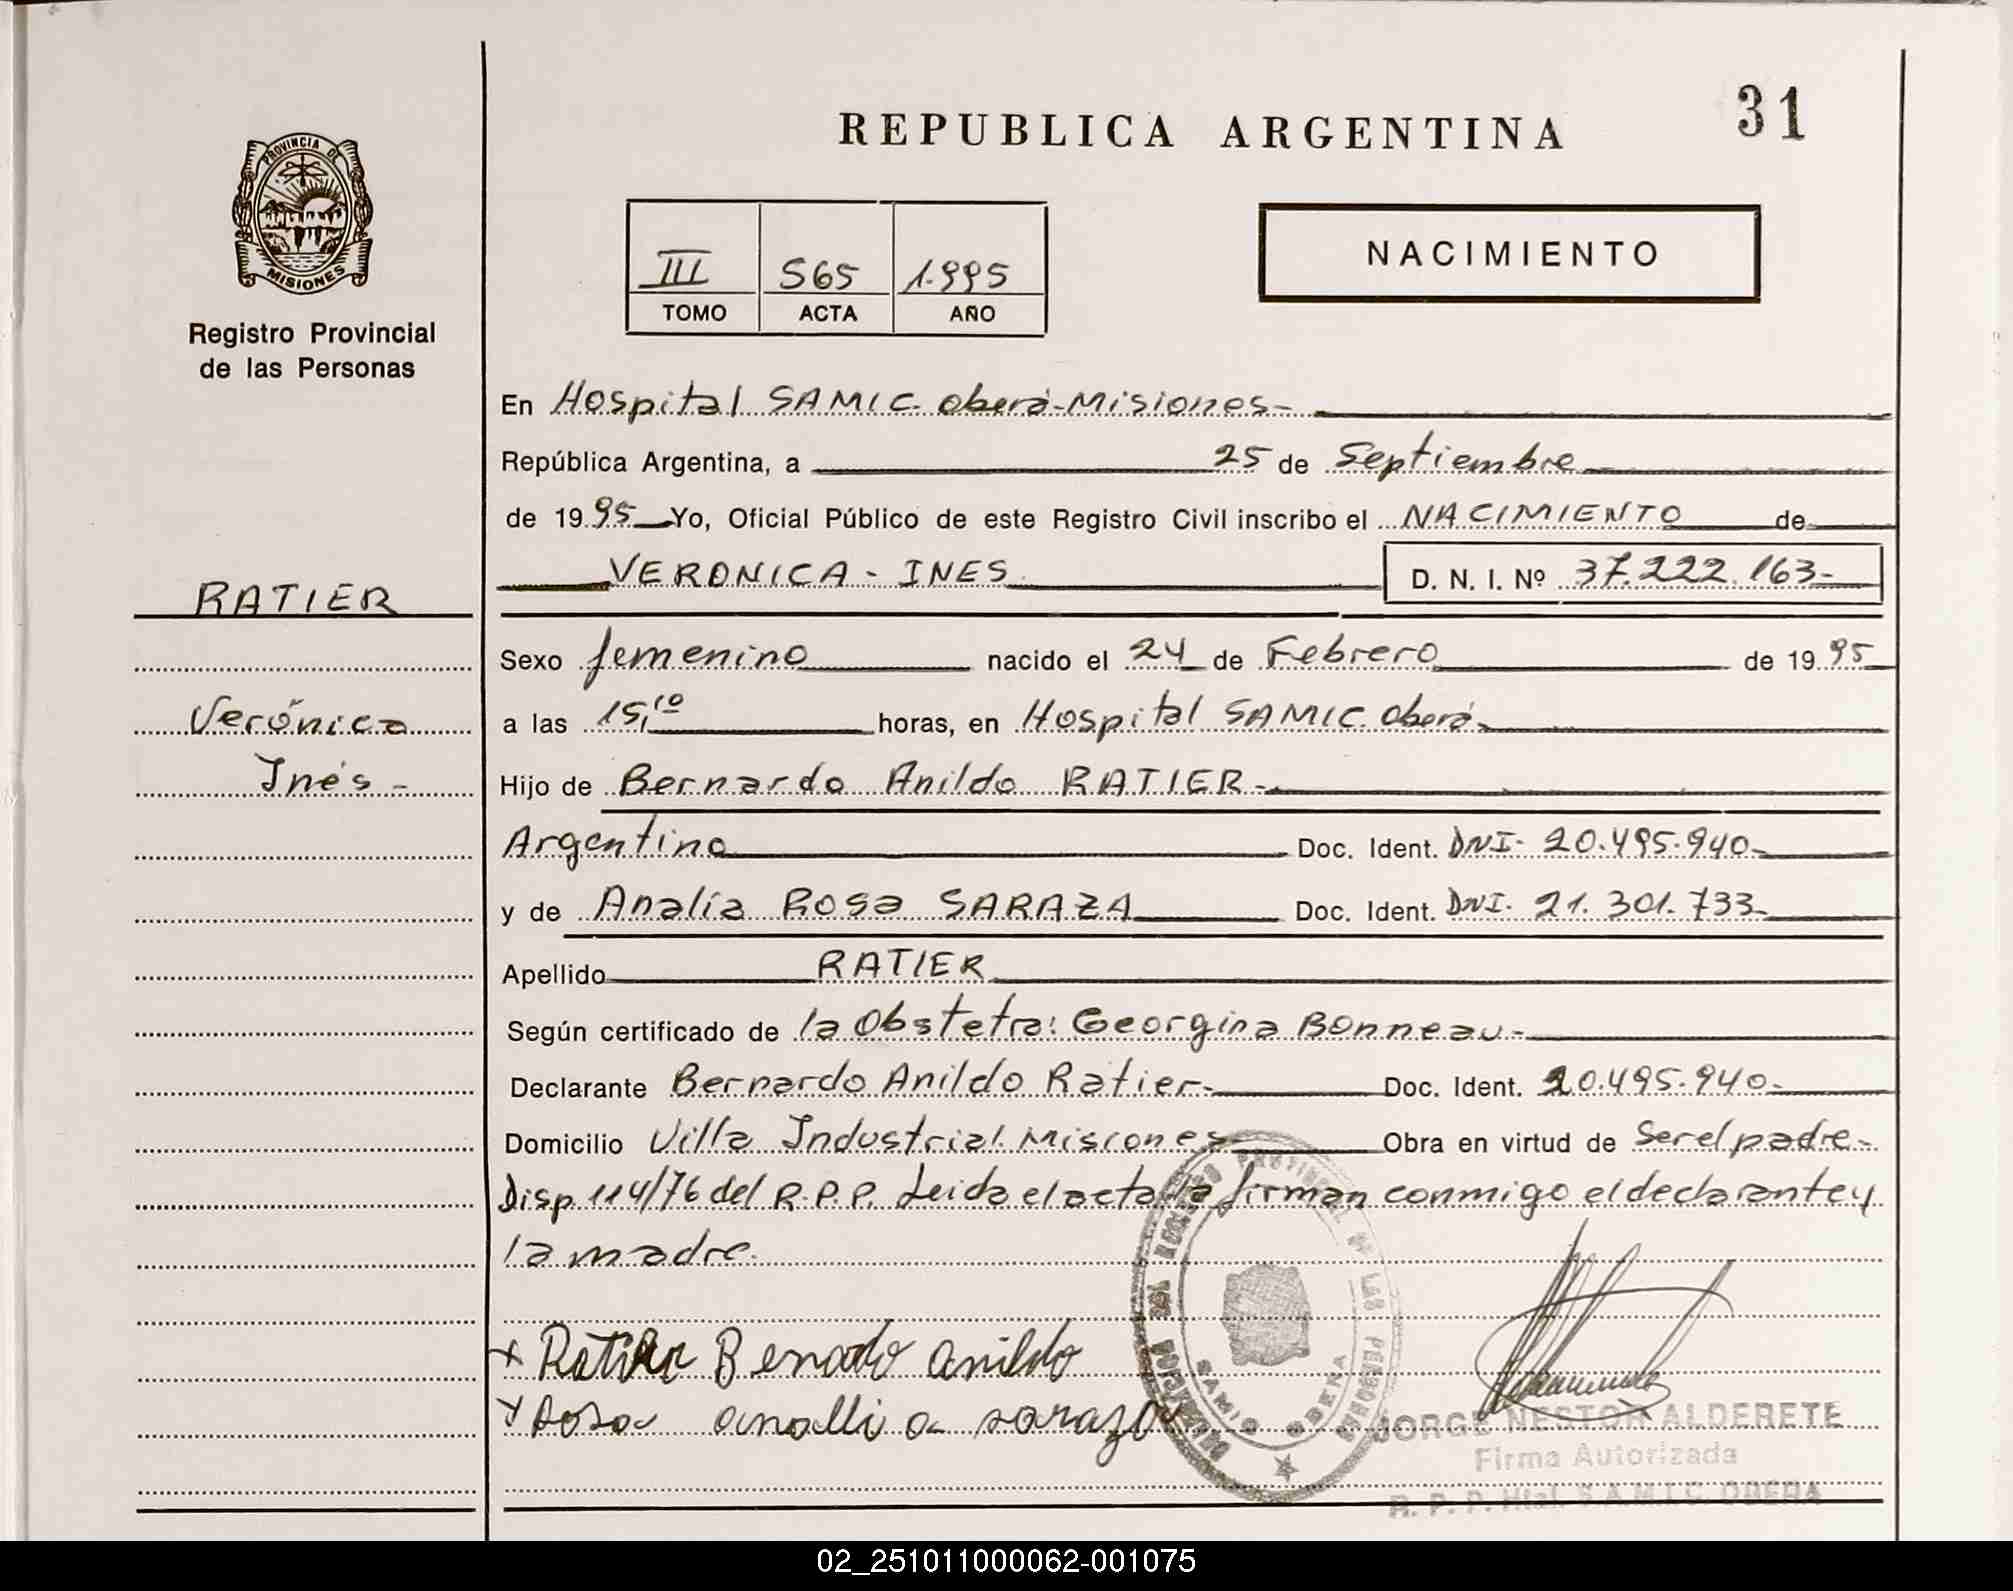 31
REPUBLICA ARGENTINA
PROVINCIA DE
MISIONES
Registro Provincial
de las Personas
NACIMIENTO
III 565 1.995
TOMO ACTA AÑO
En Hospital SAMIC. Oberá-Misiones-
República Argentina, a 25 de Septiembre
de 1995 Yo, Oficial Público de este Registro Civil inscribo el NACIMIENTO de
VERONICA - INES D. N. I. Nº 37.222.163-
RATIER
Verónica
Inés -
Sexo femenino nacido el 24 de Febrero de 1995
a las 15,10 horas, en Hospital SAMIC. Oberá-
Hijo de Bernardo Anildo RATIER-
Argentino Doc. Ident. DNI- 20.495.940-
y de Analía Rosa SARAZA Doc. Ident. DNI- 21.301.733-
Apellido RATIER
Según certificado de la Obstetra: Georgina Bonneau-
Declarante Bernardo Anildo Ratier- Doc. Ident. 20.495.940-
Domicilio Villa Industrial. Misiones- Obra en virtud de Ser el padre-
Disp. 114/76 del R.P.P. Leida el acta la firman conmigo el declarante y
la madre.
+ Ratier Benardo anildo
Rosa analli a saraza
REGISTRO PROVINCIAL DE LAS PERSONAS
SAMIC OBERA
JORGE NESTOR ALDERETE
Firma Autorizada
R. P. P. Htal. S.A.M.I.C. OBERA
02_251011000062-001075